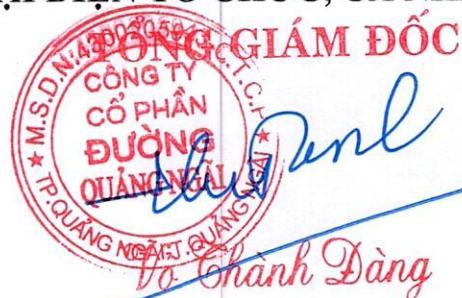 TỔNG GIÁM ĐỐC
M.S.D.N:
C.T.C.P
CÔNG TY
CỔ PHẦN
ĐƯỜNG
QUẢNG NGÃI
TP.QUẢNG NGÃI-T.QUẢNG NGÃI
Võ Thành Đàng